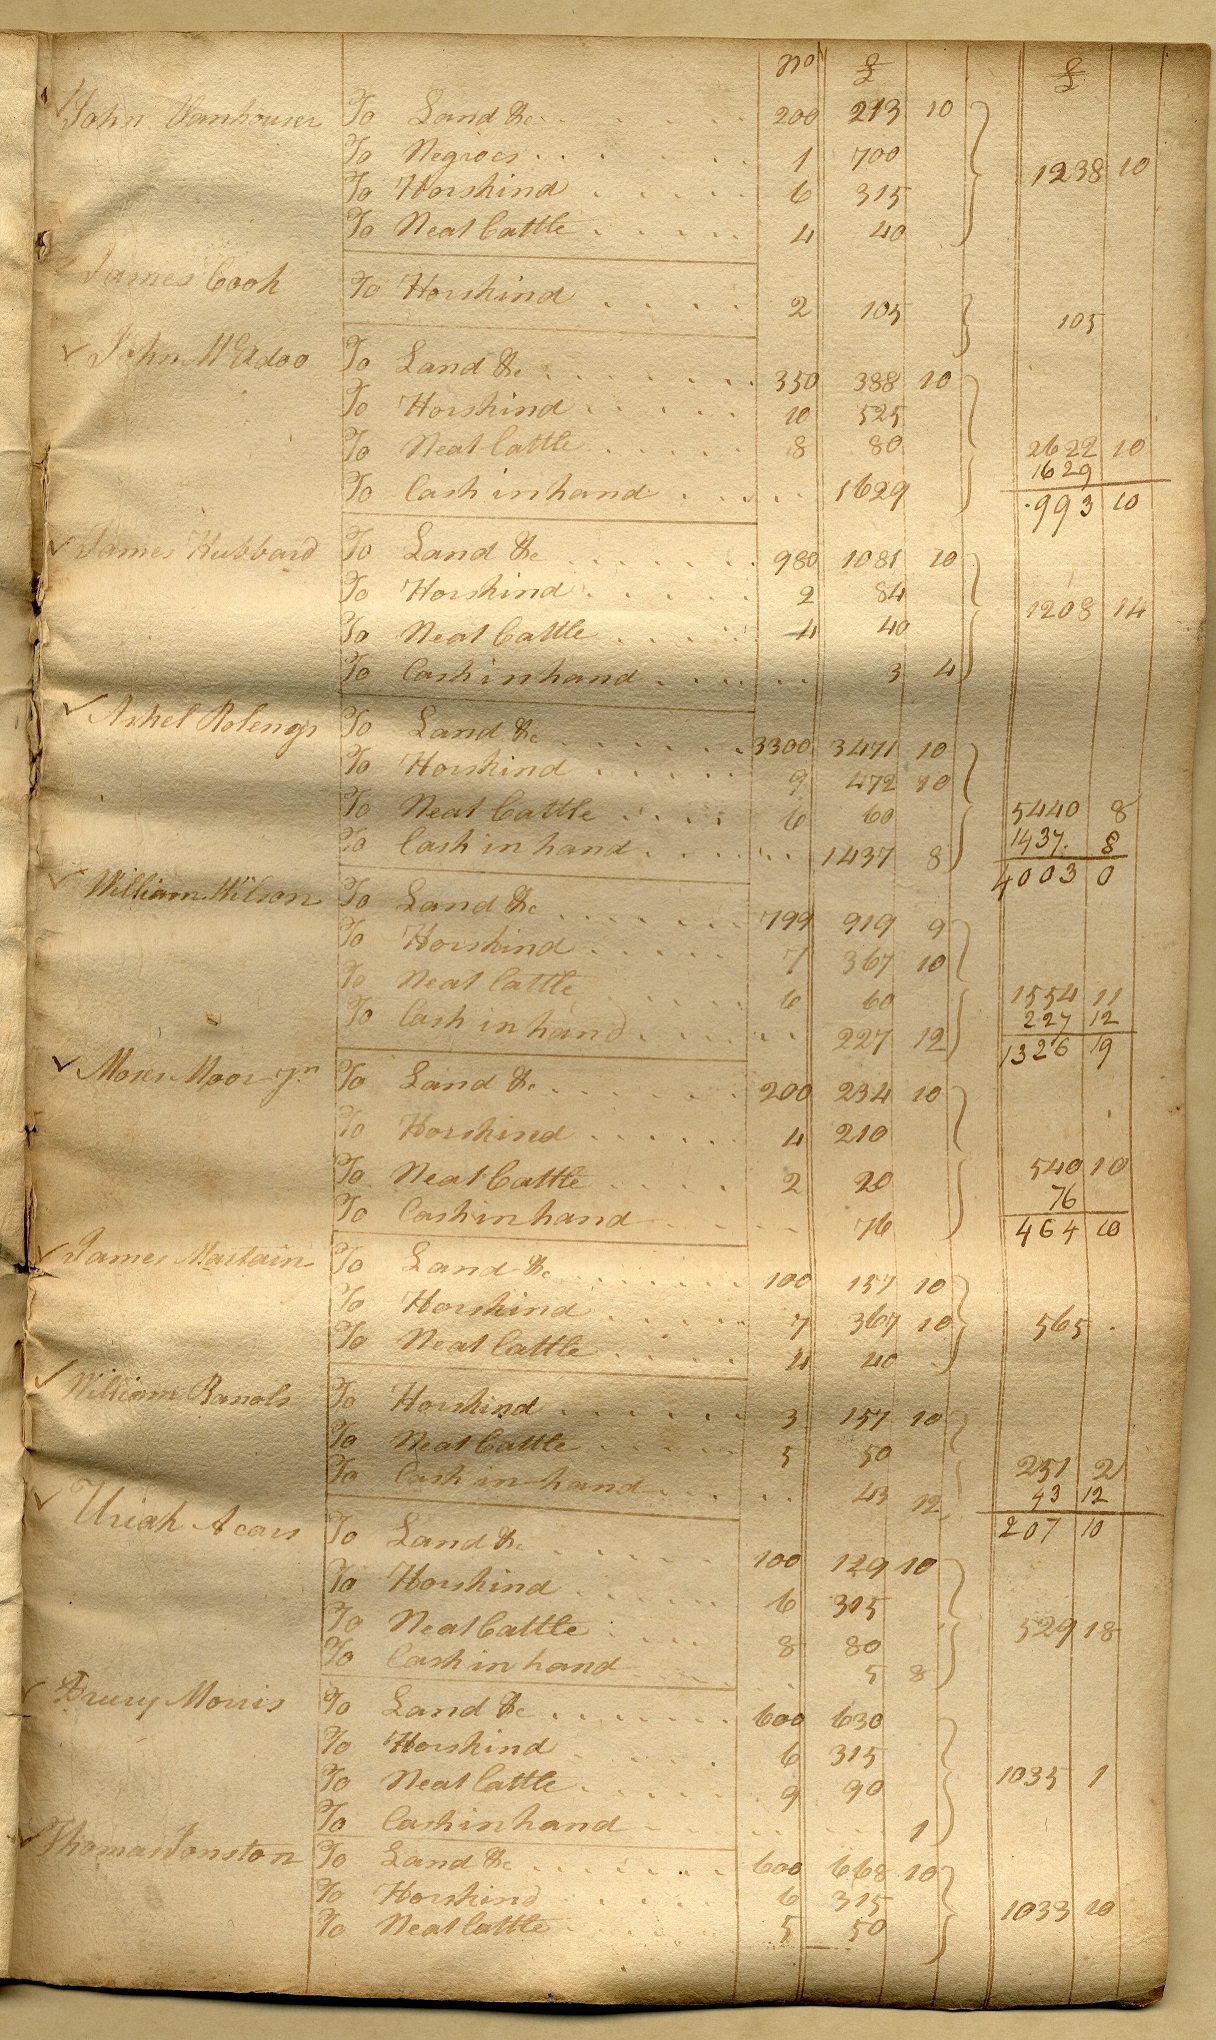 no £ £
John Vanhouser To Land &c. 200 213 10
To Negroes 1 700
To Horskind 6 315 1238 10
To Neat Cattle 4 40
James Cook To Horskind 2 105 105
John McAdoo To Land &c. 350 388 10
To Horskind 10 525
To Neat Cattle 8 80 2622 10
1629
To Cash in hand 1629 993 10
James Hubbard To Land &c 980 1081 10
To Horskind 2 84 1208 14
To Neat Cattle 4 40
To Cash in hand 3 4
To Land &c 3300 3471 10
To Horskind 9 472 10
To Neat Cattle 6 60 5440 8
1437 8
To Cash in hand 1437 8 4003 0
William Wilson To Land &c 799 919 9
To Horskind 7 367 10
To Neat Cattle 6 60 1554 11
227 12
To Cash in hand 227 12 1326 19
Moses Moor Jn To Land &c. 200 234 10
To Horskind 4 210
To Neat Cattle 2 20 540 10
76
To Cash in hand 76 464 10
James Martain To Land &c 100 157 10
To Horskind 7 367 10 565
To Neat Cattle 4 40
William Ranols To Horskind 3 157 10
To Neat Cattle 5 50 251 2
43 12
To Cash in hand 43 12 207 10
Uriah Acars To Land &c 100 129 10
To Horskind 6 315
To Neat Cattle 8 80 529 18
To Cash in hand 5 8
Drury Morris To Land &c 600 630
To Horskind 6 315
To Neat Cattle 9 90 1035 1
To Cash in hand 1
Thomas Jonston To Land &c 600 668 10
To Horskind 6 315 1033 10
To Neat Cattle 5 50